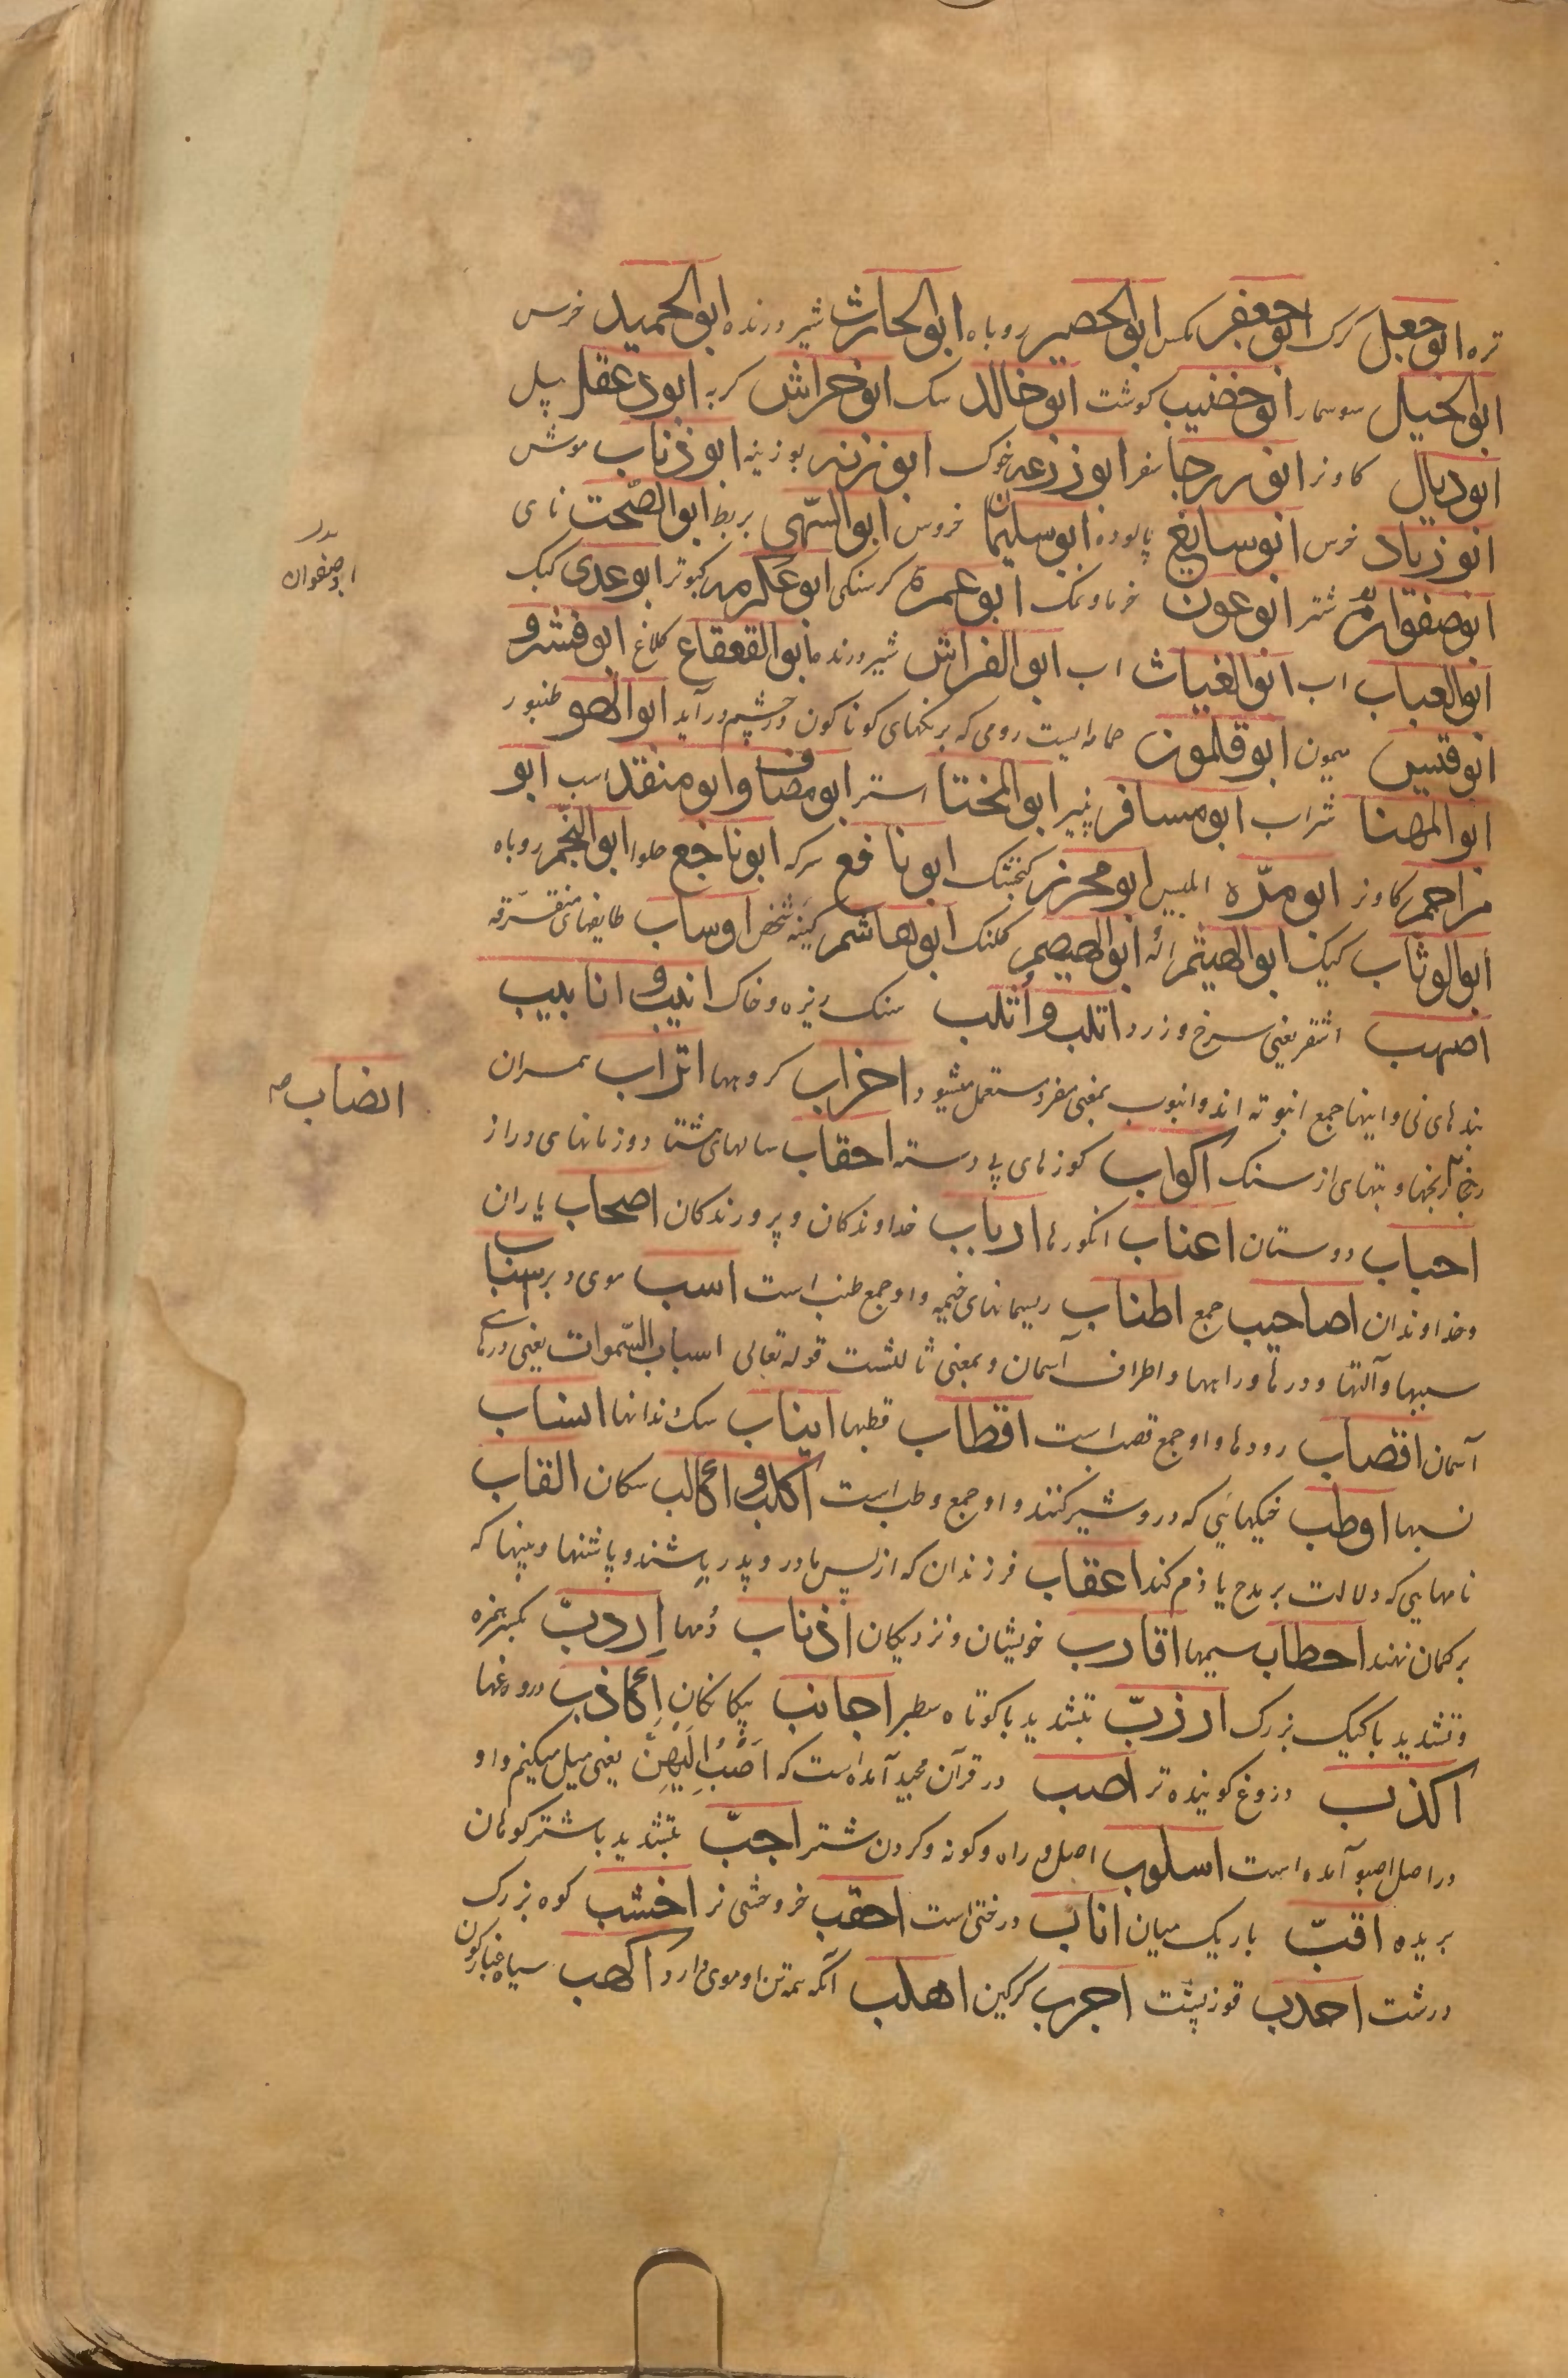 تره ابوجعل کرک ابوجعفر مکس ابوالحصیر روباه ابوالحارث شیر درنده ابوالحمید خرس
ابوالحیل سوسمار ابوخضیب کوشت ابوخالد سک ابوخراش کربه ابودغفل پیل
ابودیال کاونر ابورجا سفر ابوزرعه خوک ابوزنه بوزینه ابوذناب موش
ابوزیاد خرس ابوسایغ پالوده ابوسلیمان خروس ابوالسهی بربط ابوالصحت نای
ابوصفوان شتر ابوعون خرما و نمک ابوعمره کرسنکی ابوعکرمه کبوتر ابوعدی کیک
ابوالعباب اب ابوالغیاث اب ابوالفراش شیر درنده ابوالقعقاع کلاغ ابوقشر و
ابوقبیس میمون ابوقلمون جامه ایست رومی که برنکهای کوناکون در چشم درآید ابوالهو طنبور
ابوالمهنا شراب ابومسافر پنیر ابوالمختا استر ابومضاف و ابومنقذ اسب ابو
مزاحم کاونر ابومده ابلیس ابومحرز کنجشک ابونافع سرکه ابوناجع حلوا ابوالنجم روباه
ابوالوثاب کیک ابوالهیثم اله ابوالهیصم کلنک ابوهاشم کینه شخص اوساب طایفهای متفرقه
اصهب اشقر یعنی سرخ و زرد اثلب و اثلب سنک ریزه و خاک انیب و انابیب
بندهای نی و اینها جمع انبوته اند و انبوب بمعنی مفرد مستعمل میشود احزاب کروهها اتراب همسران
انصاب رنجها و بتهای از سنک اکواب کوزهای بی دسته احقاب سالهای هشتاد و زمانهای دراز
احباب دوستان اعناب انکورها ارباب خداوندکان و پرورندکان اصحاب یاران
و خداوندان اصاحیب جمع اطناب ریسمانهای خیمه و او جمع طنب است اسب موی دبر اسباب
سببها و آلتها و درها و راهها و اطراف آسمان و بمعنی ثالثست قوله تعالی اسباب السموات یعنی درهای
آسمان اقصاب رودها و او جمع قصب است اقطاب قطبها انیاب سک دندانها انساب
نسبها اوطب خیکهایی که درو شیر کنند و او جمع وطب است اکلب و اکالب سکان القاب
نامهایی که دلالت بر مدح یا ذم کند اعقاب فرزندان که از پس مادر و پدر باشند و پاشنها و پیها که
بر کمان نهند احطاب هیمها اقارب خویشان و نزدیکان اذناب دمها اردب بکسر همزه
و تشدید با کیک بزرک ارزب بتشدید با کوتاه سطبر اجانب بیکانکان اکاذب دروغها
اکذب دروغ کوینده تر اصب در قرآن مجید آمده است که اصب الیهن یعنی میل میکنم و او
در اصل اصبو آمده است اسلوب اصل و راه و کونه و کردن شتر اجب بتشدید با شتر کوهان
بریده اقب باریک میان اناب درختی است احقب خر وحشی نر اخشب کوه بزرک
درشت احدب قوز پشت اجرب کرکین اهلب آنکه همه تن او موی دارد اکهب سیاه غبارکون
ابوصفوان
انصاب صح